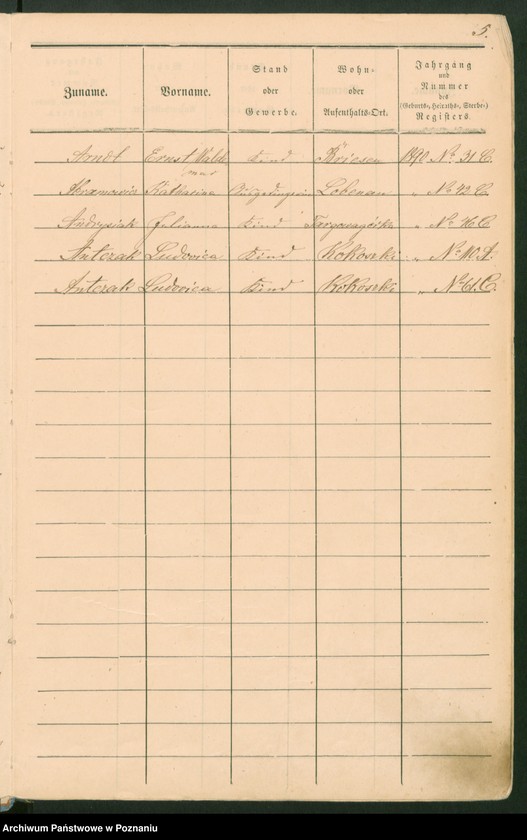 5.
Zuname. Vorname. Stand oder Gewerbe. Wohn- oder Aufenthalts-Ort. Jahrgang und Nummer des (Geburts-, Heiraths-, Sterbe-) Registers.
Arndt Ernst Walde Kind 1890 No. 31 C.
mar
Katharina Lobenau „ No. 42 C.
Andrysiak Julianna Kind Targowagórka „ No. C.
Anterak Ludovica Kind Kokoszki „ No. 110 A.
Anterak Ludovica Kind Kokoszki „ No. 61 C.
Archiwum Państwowe w Poznaniu